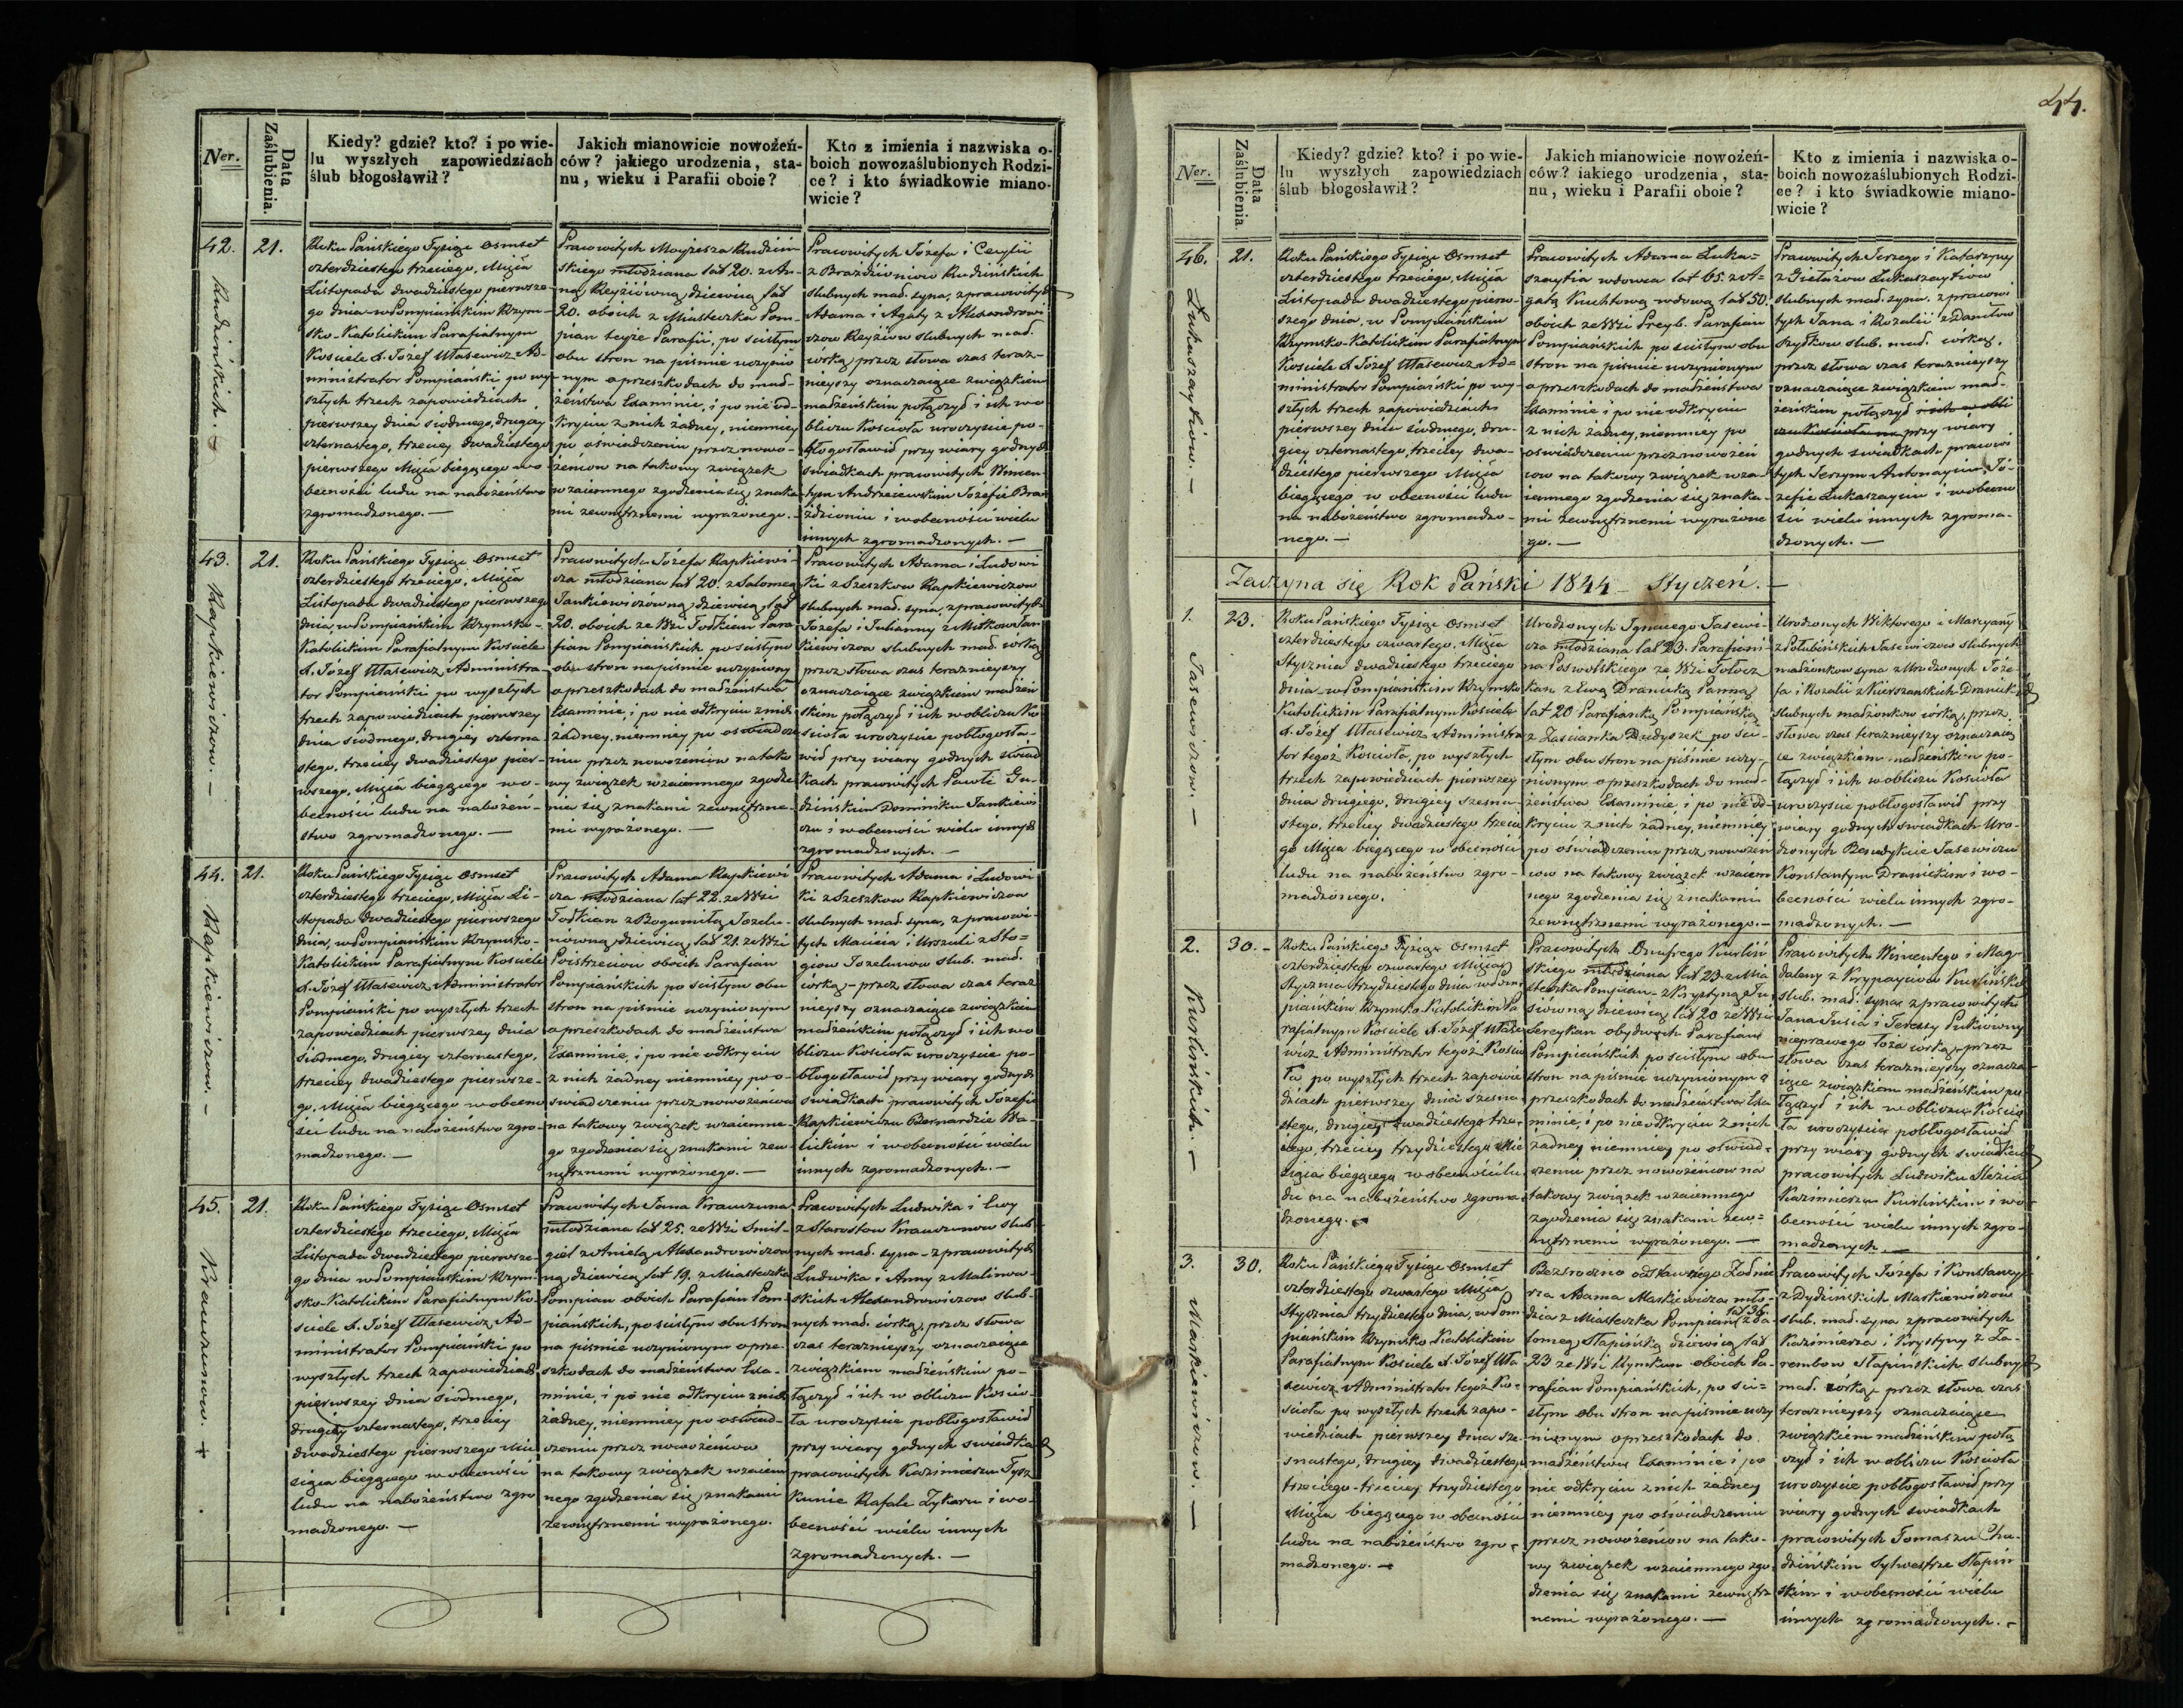 44.
Ner.
Data Zaślubienia.
Kiedy? gdzie? kto? i po wie-
lu wyszłych zapowiedziach
ślub błogosławił?
Jakich mianowicie nowożeń-
ców? jakiego urodzenia, sta-
nu, wieku i Parafii oboie?
Kto z imienia i nazwiska o-
boich nowozaślubionych Rodzi-
ce? i kto świadkowie miano-
wicie?
42.
Rudzińskich. –
21.
Roku Pańskiego Tysiąc Osmset
czterdziestego trzeciego, Mięśca
Listopada dwadziestego pierwsze-
go dnia w Pompiańskim Rzym-
sko-Katolickim Parafialnym
Kosciele X. Józef Ułasewicz Ad-
ministrator Pompiański po wy-
szłych trzech zapowiedziach
pierwszey dnia siodmego, drugiey
czternastego, trzeciey dwadziestego
pierwszego Mięśca bieżącego w o-
becności ludu na nabożeństwo
zgromadzonego. –
Pracowitych Moyżesza Rudziń-
skiego młodziana lat 20. z An-
ną Reyżiówną dziewicą lat
20. oboich z Miasteczka Pom-
pian teyże Parafii, po scisłym
obu stron na pismie uczynio-
nym o przeszkodach do mał-
żeństwa Examinie, i po nie od-
kryciu z nich żadney, niemniey
po oświadczeniu przez nowo-
żeńcow na takowy związek
wzaiemnego zgodzenia się znaka-
mi zewnętrznemi wyrażonego. –
Pracowitych Józefa i Cecylii
z Braździoniow Rudzińskich
slubnych mał. syna, z pracowitych
Adama i Agaty z Alexandrowi-
czow Reyżiow slubnych mał.
córką przez słowa czas teraz-
nieyszy oznaczaiące związkiem
małżeńskim połączył i ich w o-
bliczu Kościoła uroczyscie po-
błogosławił przy wiary godnych
swiadkach pracowitych Wincen-
tym Andrzeiewskim Józefie Bra-
ździoniu i w obecności wielu
innych zgromadzonych. –
43.
Rapkiewiczow. –
21.
Roku Pańskiego Tysiąc Osmset
czterdziestego trzeciego, Mięśca
Listopada dwadziestego pierwszego
dnia, w Pompiańskim Rzymsko-
Katolickim Parafialnym Kosciele
X. Józef Ułasewicz Administra-
tor Pompiański po wyszłych
trzech zapowiedziach pierwszey
dnia siodmego, drugiey czterna-
stego, trzeciey dwadziestego pier-
wszego, Mięśca bieżącego w o-
becności ludu na nabożeń-
stwo zgromadzonego. –
Pracowitych Józefa Rapkiewi-
cza młodziana lat 20. z Salomeą
Jankiewiczówną dziewicą lat
20. oboich ze Wsi Todkian Para-
fian Pompiańskich po scisłym
obu stron na pismie uczynionym
o przeszkodach do małżeństwa
Examinie, i po nie odkryciu z nich
żadney, niemniey po oświadcze-
niu przez nowożeńcow na tako-
wy związek wzaiemnego zgodze-
nia się znakami zewnętrzne-
mi wyrażonego. –
Pracowitych Adama i Ludowi-
ki z Szeszkow Rapkiewiczow
slubnych mał. syna, z pracowitych
Józefa i Julianny z Mitkow Jan-
kiewiczow slubnych mał. córką
przez słowa czas teraznieyszy
oznaczaiące związkiem małżeń-
skim połączył i ich w obliczu Ko-
scioła uroczyscie pobłogosła-
wił przy wiary godnych swiad-
kach pracowitych Pawle Gu-
dzińskim Dominiku Jankiewi-
czu i w obecności wielu innych
zgromadzonych. –
44.
Rapkiewiczow. –
21.
Roku Pańskiego Tysiąc Osmset
czterdziestego trzeciego, Mięśca Li-
stopada dwadziestego pierwszego
dnia, w Pompiańskim Rzymsko-
Katolickim Parafialnym Kosciele
X. Józef Ułasewicz Administrator
Pompiański po wyszłych trzech
zapowiedziach pierwszey dnia
siodmego, drugiey czternastego,
trzeciey dwadziestego pierwsze-
go, Mięśca bieżącego w obecno-
ści ludu na nabożeństwo zgro-
madzonego. –
Pracowitych Adama Rapkiewi-
cza młodziana lat 22. ze Wsi
Todkian z Bogumiłą Jozelu-
nówną dziewicą lat 21. ze Wsi
Poistrzeciow oboich Parafian
Pompiańskich po scisłym obu
stron na pismie uczynionym
o przeszkodach do małżeństwa
Examinie, i po nie odkryciu
z nich żadney niemniey po o-
świadczeniu przez nowożeńcow
na takowy związek wzaiemne-
go zgodzenia się znakami zew-
nętrznemi wyrażonego. –
Pracowitych Adama i Ludowi-
ki z Szeszkow Rapkiewiczow
slubnych mał. syna, z pracowi-
tych Macieia i Urszuli z Sto-
giow Jozelunow slub. mał.
córką – przez słowa czas teraz-
nieyszy oznaczaiące związkiem
małżeńskim połączył i ich w o-
bliczu Kościoła uroczyscie po-
błogosławił przy wiary godnych
świadkach pracowitych Józefie
Rapkiewiczu Bernardzie Wa-
lickim i w obecności wielu
innych zgromadzonych. –
45.
Krauzunow. +
21.
Roku Pańskiego Tysiąc Osmset
czterdziestego trzeciego, Mięśca
Listopada dwadziestego pierwsze-
go dnia w Pompiańskim Rzym-
sko-Katolickim Parafialnym Ko-
sciele X. Józef Ułasewicz Ad-
ministrator Pompiański po
wyszłych trzech zapowiedziach
pierwszey dnia siodmego,
drugiey czternastego, trzeciey
dwadziestego pierwszego Mie-
siąca bieżącego w obecności
ludu na nabożeństwo zgro-
madzonego. –
Pracowitych Jana Krauzuna
młodziana lat 25. ze Wsi Smil-
giel z Anielą Alexandrowiczow-
ną dziewicą lat 19. z Miasteczka
Pompian oboich Parafian Pom-
piańskich, po scisłym obu stron
na pismie uczynionym o prze-
szkodach do małżeństwa Exa-
minie, i po nie odkryciu z nich
żadney, niemniey po oświad-
czeniu przez nowożeńcow
na takowy związek wzaiem-
nego zgodzenia się znakami
zewnętrznemi wyrażonego.
Pracowitych Ludwika i Ewy
z Starostow Krauzunow slub-
nych mał. syna – z pracowitych
Ludwika i Anny z Malinow-
skich Alexandrowiczow slub-
nych mał. córką, przez słowa
czas teraznieyszy oznaczaiące
związkiem małżeńskim po-
łączył i ich w obliczu Koscio-
ła uroczyscie pobłogosławił
przy wiary godnych swiadkach
pracowitych Kazimierzu Tysz-
kunie Rafale Zykaru i w o-
becności wielu innych
zgromadzonych. –
Ner.
Data Zaślubienia
Kiedy? gdzie? kto? i po wie-
lu wyszłych zapowiedziach
ślub błogosławił?
Jakich mianowicie nowożeń-
ców? iakiego urodzenia, sta-
nu, wieku i Parafii oboie?
Kto z imienia i nazwiska o-
boich nowozaślubionych Rodzi-
ce? i kto świadkowie miano-
wicie?
46.
Łukaszaytiow. –
21.
Roku Pańskiego Tysiąc Osmset
czterdziestego trzeciego, Mięśca
Listopada dwadziestego pierw-
szego dnia, w Pompiańskim
Rzymsko-Katolickim Parafialnym
Kosciele X. Józef Ułasewicz Ad-
ministrator Pompiański po wy-
szłych trzech zapowiedziach
pierwszey dnia siodmego, dru-
giey czternastego, trzeciey dwa-
dziestego pierwszego Mięśca
bieżącego w obecności ludu
na nabożeństwo zgromadzo-
nego. –
Pracowitych Adama Łuka-
szaytia wdowca lat 65. z A-
gatą Kuchtową wdową lat 50.
oboich ze Wsi Preyb. Parafian
Pompiańskich po scisłym obu
stron na pismie uczynionym
o przeszkodach do małżeństwa
Examinie i po nie odkryciu
z nich żadney, niemniey po
oswiadczeniu przez nowożeń-
cow na takowy związek wza-
iemnego zgodzenia się znaka-
mi zewnętrznemi wyrażone-
go. –
Pracowitych Jerzego i Katarzyny
z Gielażow Łukaszaytiow
slubnych mał. syna, z pracowi-
tych Jana i Rozalii z Danilow
Szydłow slub. mał. córką,
przez słowa czas teraznieyszy
oznaczaiące związkiem mał-
żeńskim połączył i ich w obli-
czu Kościoła przy wiary
godnych swiadkach pracowi-
tych Jerzym Antonayciu, Jó-
zefie Łukaszayciu i w obecno-
ści wielu innych zgroma-
dzonych. –
Zaczyna się Rok Pański 1844 – Styczeń. –
1.
Jasewiczow. –
23.
Roku Pańskiego Tysiąc Osmset
czterdziestego czwartego, Mięśca
Stycznia dwadziestego trzeciego
dnia w Pompiańskim Rzymsko
Katolickim Parafialnym Kosciele
X. Józef Ułasewicz Administra-
tor tegoż Kościoła, po wyszłych
trzech zapowiedziach pierwszey
dnia drugiego, drugiey szesna-
stego, trzeciey dwadziestego trzecie-
go Mięśca bieżącego w obecności
ludu na nabożeństwo zgro-
madzonego.
Urodzonych Ignacego Jasewi-
cza młodziana lat 23. Parafiani-
na Poswolskiego ze Wsi Tołocz-
kan z Ewą Dranicką Panną
lat 20 Parafianką Pompiańską
z Zascianka Dudyszek po sci-
słym obu stron na piśmie uczy-
nionym o przeszkodach do mał-
żeństwa Examinie i po nie od-
kryciu z nich żadney, niemniey
po oświadczeniu przez nowożeń-
cow na takowy związek wzaiem-
nego zgodzenia się znakami
zewnętrznemi wyrażonego. –
Urodzonych Wiktorego i Maryanny
z Połubińskich Jasewiczow slubnych
małżonkow syna z Urodzonych Józe-
fa i Rozalii z Kierszańskich Dranickich
slubnych małżonkow córką, przez
słowa czas teraznieyszy oznaczaią-
ce związkiem małżeńskim po-
łączył i ich w obliczu Kościoła
uroczyscie pobłogosławił przy
wiary godnych swiadkach Uro-
dzonych Benedykcie Jasewiczu
Konstantym Dranickim i w o-
becności wielu innych zgro-
madzonych. –
2.
Kurlińskich. –
30. –
Roku Pańskiego Tysiąc Osmset
czterdziestego czwartego Mięśca
Stycznia trzydziestego dnia w Pom-
piańskim Rzymsko Katolickim Pa-
rafialnym Kosciele X. Józef Ułase-
wicz Administrator tegoż Koscio-
ła po wyszłych trzech zapowie-
dziach pierwszey dnia szesna-
stego, drugiey dwadziestego trze-
ciego, trzeciey trzydziestego Mie-
siąca bieżącego w obecności lu-
du na nabożeństwo zgroma-
dzonego. –
Pracowitych Onufrego Kurliń-
skiego młodziana lat 23 z Mia-
steczka Pompian – z Krystyną Ju-
siówną dziewicą lat 20 ze Wsi
Sereykan obydwuch Parafian
Pompiańskich po scisłym obu
stron na piśmie uczynionym o
przeszkodach do małżeństwa Exa-
minie, i po nie odkryciu z nich
żadney niemniey po oświad-
czeniu przez nowożeńcow na
takowy związek wzaiemnego
zgodzenia się znakami zew-
nętrznemi wyrażonego. –
Pracowitych Wincentego i Mag-
daleny z Krypayciow Kurlińskich
slub. mał. syna z pracowitych
Jana Jusia i Teressy Putwówny
nieprawego łoża córką przez
słowa czas teraznieyszy oznacza-
iące związkiem małżeńskim po-
łączył i ich w obliczu Koscio-
ła uroczyscie pobłogosławił
przy wiary godnych swiadkach
pracowitych Ludwiku Sleziu
Kazimierzu Kurlińskim i w o-
becności wielu innych zgro-
madzonych. –
3.
Maskiewiczow. –
30.
Roku Pańskiego Tysiąc Osmset
czterdziestego czwartego Mięśca
Stycznia trzydziestego dnia, w Pom-
piańskim Rzymsko Katolickim
Parafialnym Kosciele X. Józef Uła-
sewicz Administrator tegoż Ko-
scioła po wyszłych trzech zapo-
wiedziach pierwszey dnia sze-
snastego, drugiey dwadziestego
trzeciego – trzeciey trzydziestego
Mięśca bieżącego w obecności
ludu na nabożeństwo zgro-
madzonego. –
Bezsroczno odstawnego Żołnie-
rza Adama Maskiewicza mło-
dzia z Miasteczka Pompian lat 36. z Sa-
lomeą Stapińską dziewicą lat
23 ze Wsi Kymkun oboich Pa-
rafian Pompiańskich, po sci-
słym obu stron na pismie uczy-
nionym o przeszkodach do
małżeństwa Examinie i po
nie odkryciu z nich żadney
niemniey po oświadczeniu
przez nowożeńcow na tako-
wy związek wzaiemnego zgo-
dzenia się znakami zewnętrz-
nemi wyrażonego. –
Pracowitych Józefa i Konstancyi
z Dydzińskich Maskiewiczow
slub. mał. syna z pracowitych
Kazimierza i Krystyny z Za-
rembow Stapińskich slubnych
mał. córką przez słowa czas
teraznieyszy oznaczaiące
związkiem małżeńskim połą-
czył i ich w obliczu Kościoła
uroczyscie pobłogosławił przy
wiary godnych swiadkach
pracowitych Tomaszu Chu-
dzińskim Sylwestrze Stapiń-
skim i w obecności wielu
innych zgromadzonych. –